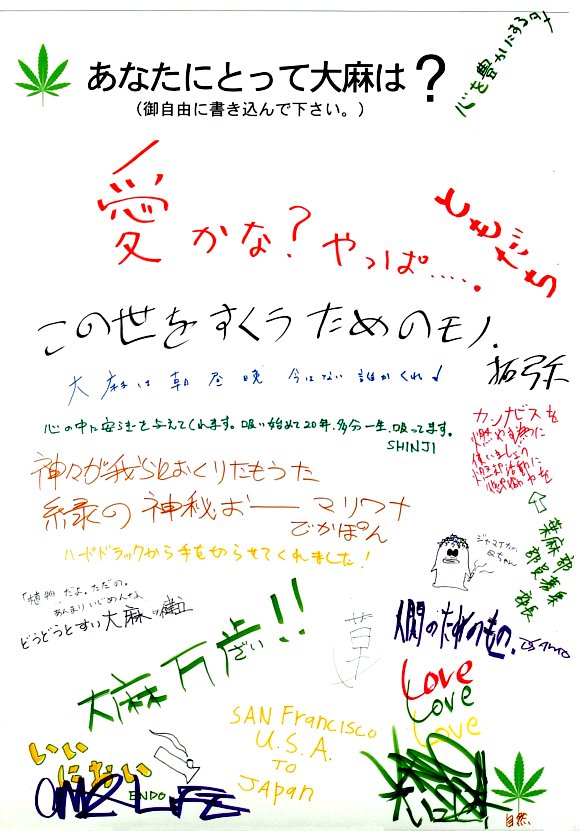 あなたにとって大麻は?
(御自由に書き込んで下さい。)
心を豊かにする
愛かな?やっぱ.....
ともだち
この世をすくうためのモノ.
拓弥
大麻は朝昼晩 今はない 誰かくれ!
心の中に安らぎを与えてくれます。吸い始めて20年、多分一生、吸ってます。
SHINJI
カンナビスを
燃やす為に
使いましょう
神々が我らにおくりたもうた
緑の神秘おー マリワナ
でかぽん
ハードドラックから手を切らせてくれました!
ジャマイカの
葉麻部
部員募集
部長
「植物」だよ。ただの。
あんまりいじめんな
どうどうとすい大麻
大麻万歩!!
ざい
草
人間のためのもの.
Love
Love
Love
SAN Francisco
U.S.A.
TO
JAPAN
いい
じゃない
ENDO
ONE LIFE
自然